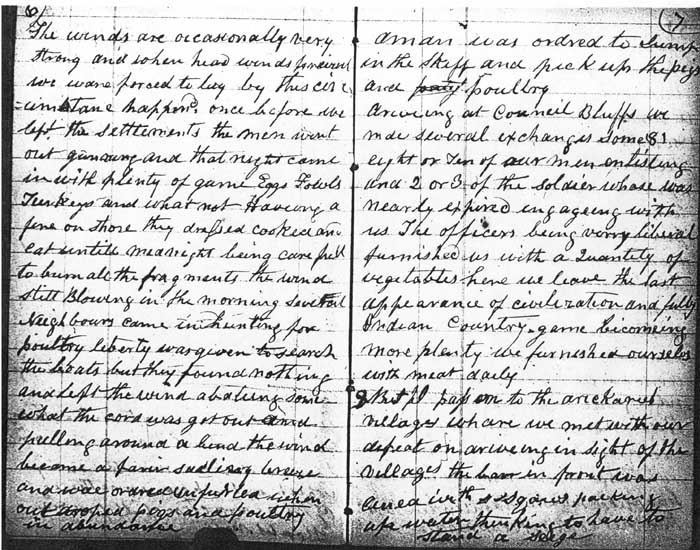 6)
The winds are occasionally very
strong and when head winds prevail
we ware forced to lay by this cir
cumstane happend once before we
left the settlements the men went
out gunning and that night came
in with plenty of game Eggs Fowls
Turkeys and what not Haveing a
fire on shore they dressed cooked and
eat untill midnight being care full
to burn all the fragments the wind
still Blowing in the morning Several
Neighbours came in hunting for
poultry liberty was given to search
the boats but they found nothing
and left the wind abateing some
what the cord was got out and
pulling around a bend the wind
became a fair sailing breeze
and wae ordred unfurled when
out droped pigs and poultry
in abundance
(7
aman was ordred to Jump
in the Skiff and pick up the pigs
and poultry
Ariveing at Council Bluffs we
made several exchanges some 8
eight or Ten of our men enlisting
and 2 or 3 of the soldier whose was
nearly expired engageing with
us The officers being verry liberal
furnished us with a Quantity of
vegetables here we leave the last
appearance of civilization and fully
Indian Country game becomeing
more plenty we furnished ourselves
with meat daily
But I pass on to the arickaree
villages whare we met with our
defeat on ariveing in sight of the
villages the barr in front was
lined with squaws packing
up water thinking to have to
stand a siege